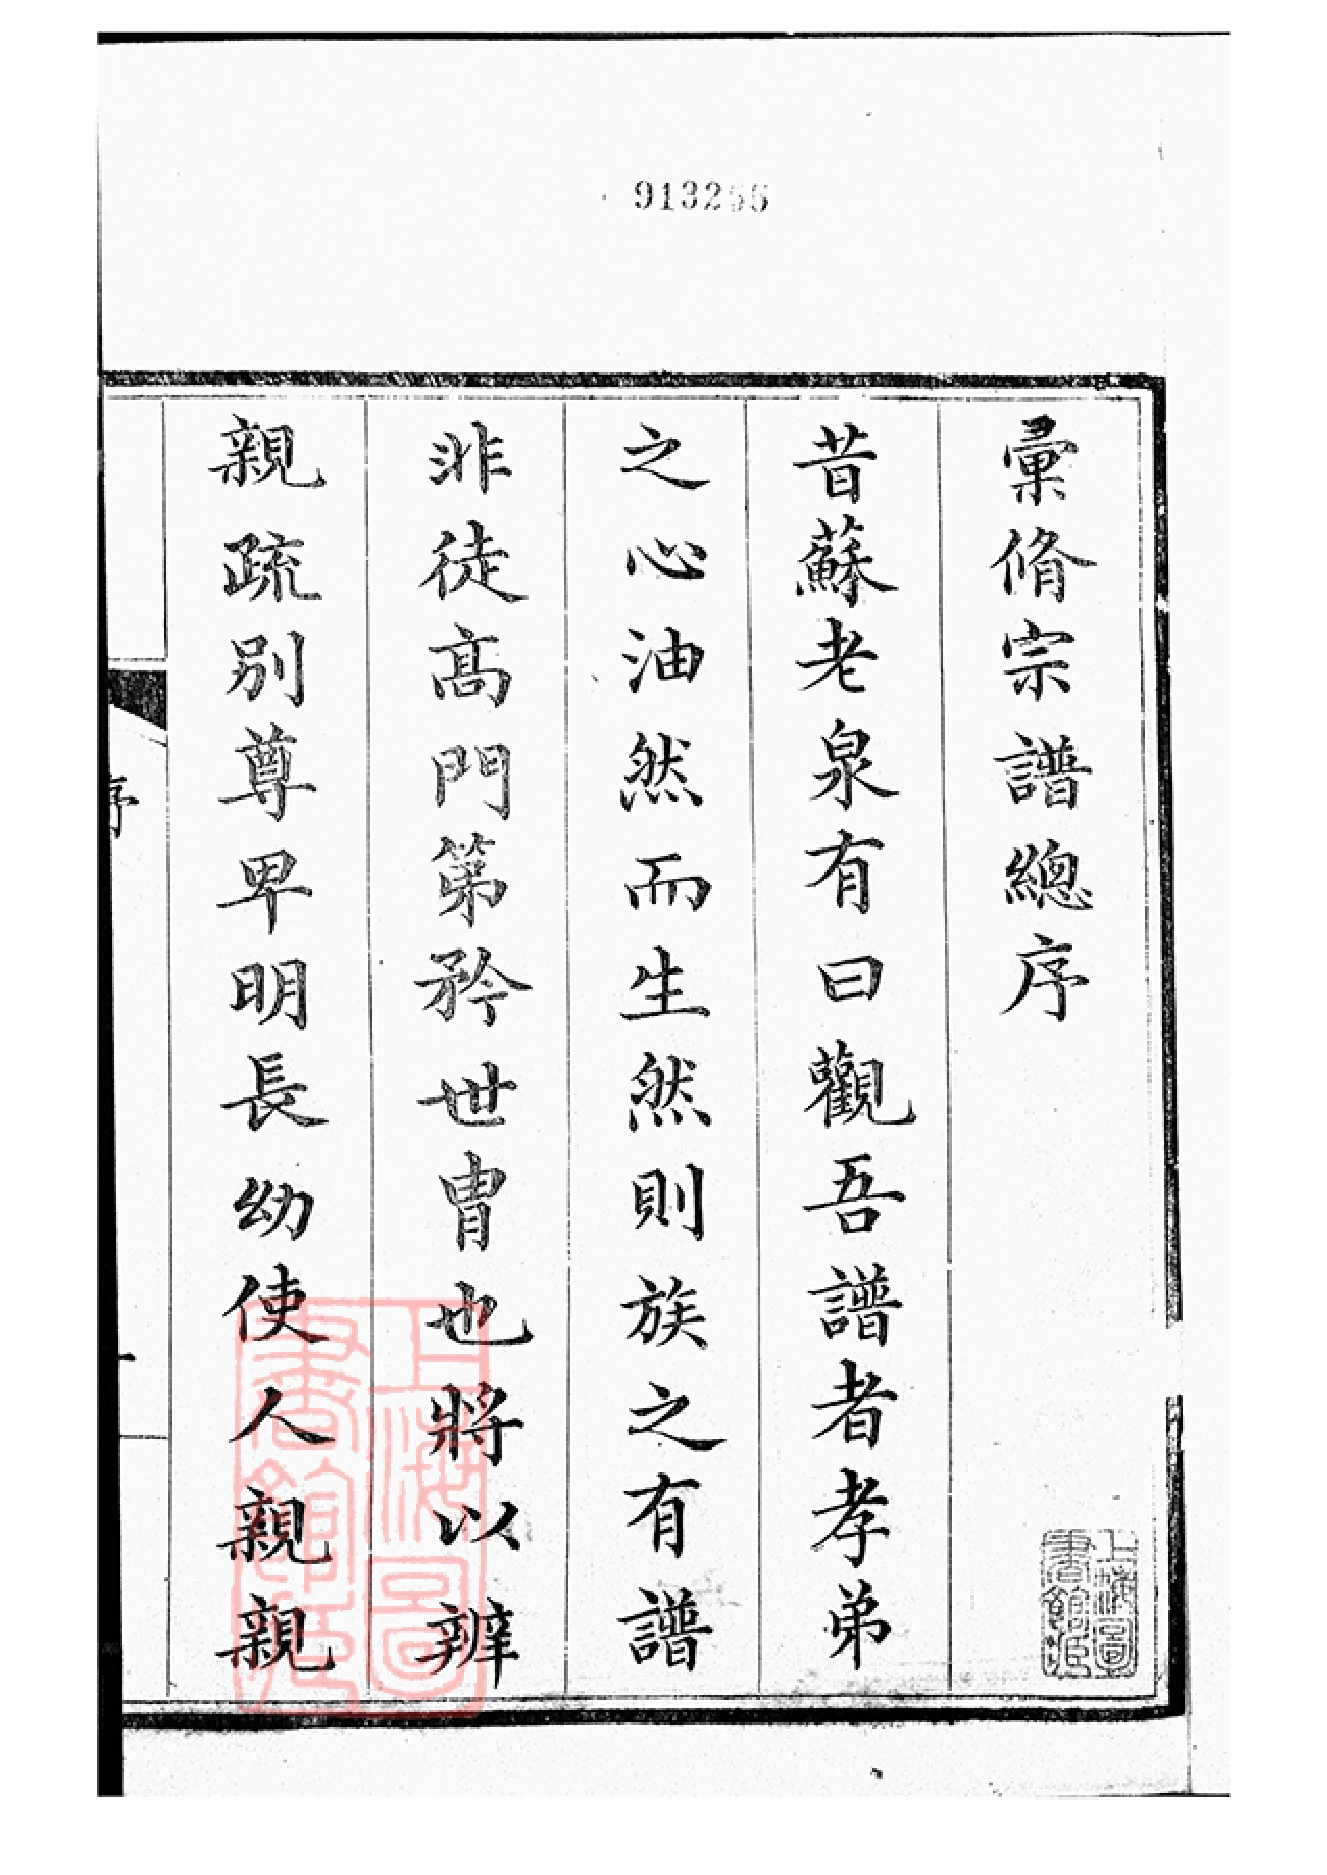 913255
彙脩宗譜總序
昔蘇老泉有曰觀吾譜者孝弟
之心油然而生然則族之有譜
非徒高門第矜世胄也將以辨
親疏別尊卑明長幼使人親親
序
一
上海圖書館藏
上海圖書館藏